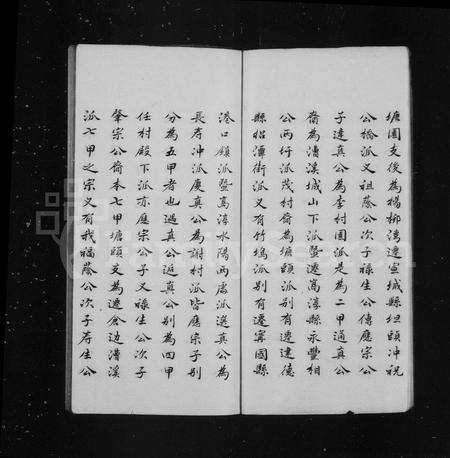 塘園支後為楊柳溝遷宣城縣坦頭冲祝
公橋派又祖蔭公次子祿生公傳應宗公
子達真公為李村園派是為二甲通真公
裔為漕溪城山下派暨遷高淳縣永豐相
公兩圩派茂村裔為塘頭派別有遷建德
縣招潭街派又有竹塢派別有遷寧國縣
港口鎮派暨高淳水陽兩處派選真公為
長存冲派庚真公為謝村派皆應宗子別
分為五甲者也遇真公返真公別為四甲
任村殿下派亦應宗公子又祿生公次子
肇宗公裔本七甲塘頭支為遷倉边漕溪
派七甲之宗又有我福蔭公次子存生公